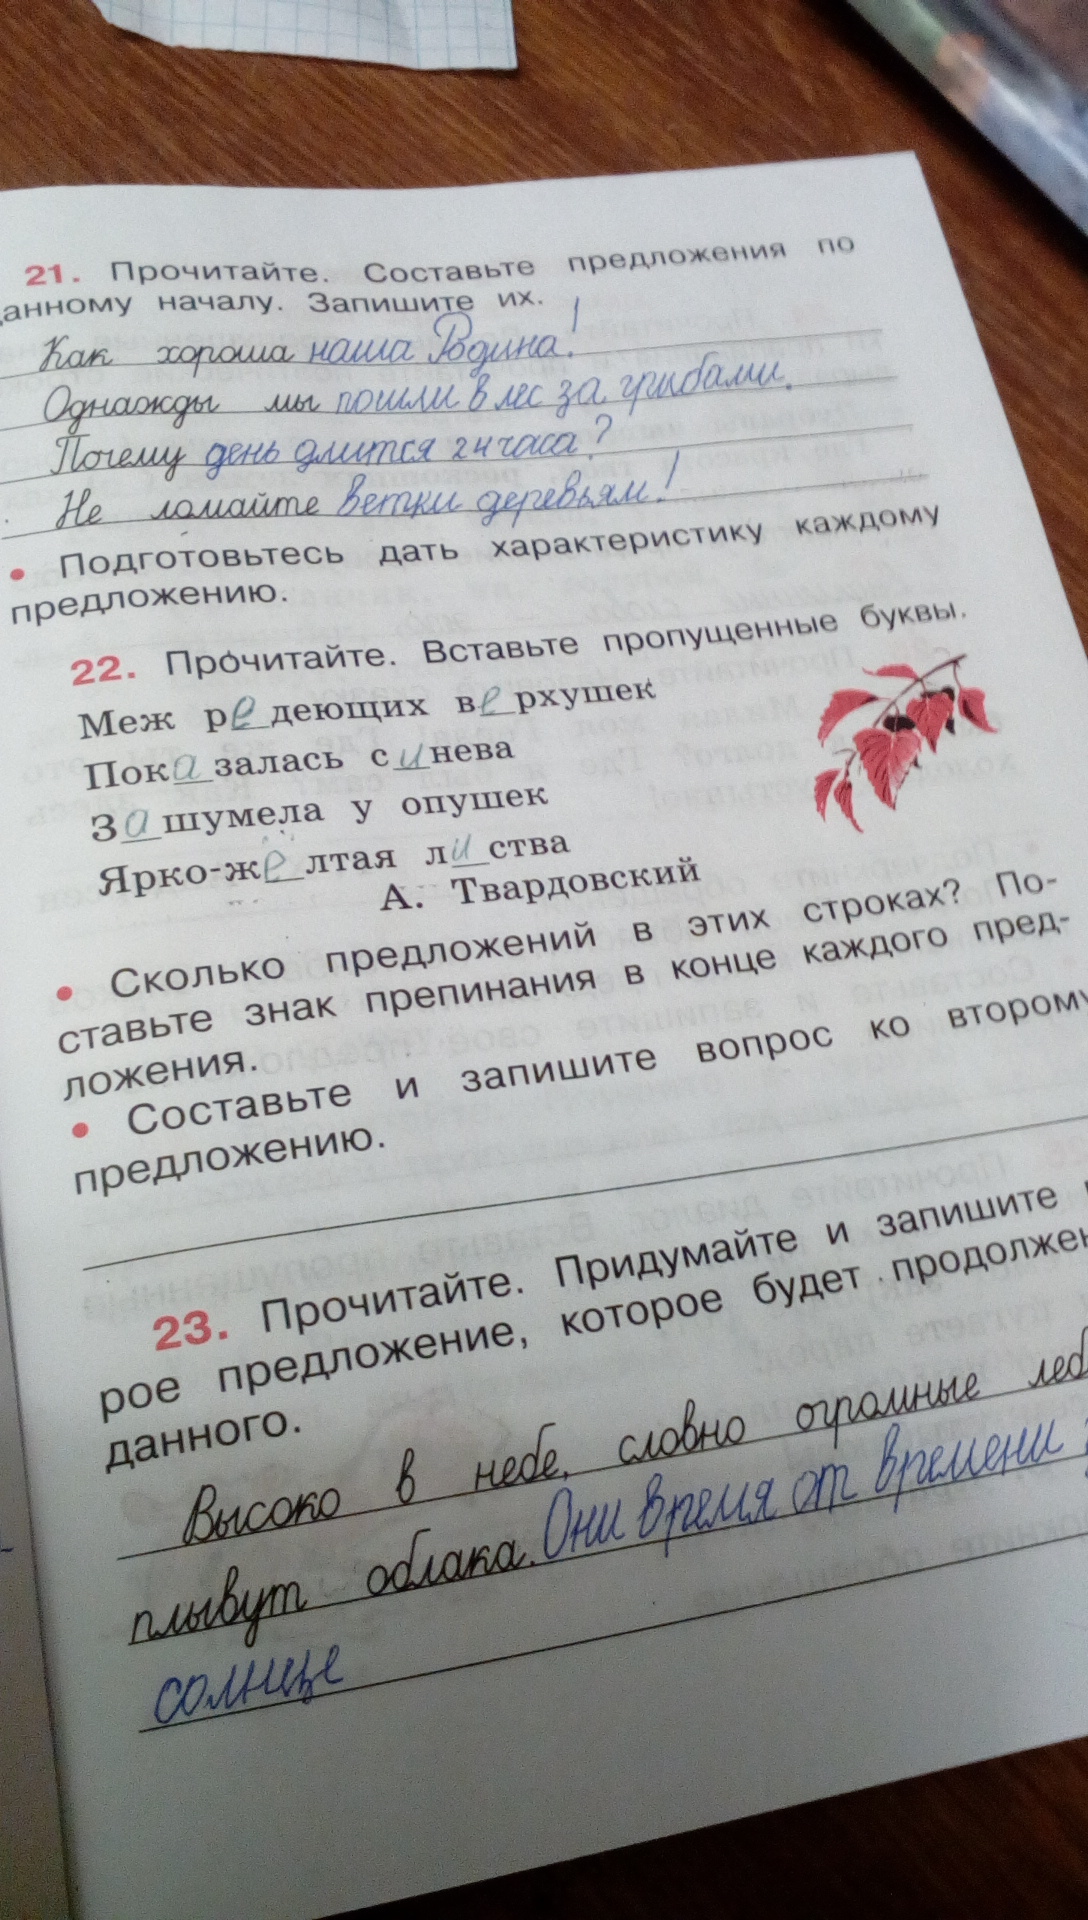 21. Прочитайте. Составьте предложения по
данному началу. Запишите их.
Как хороша наша Родина!
Однажды мы пошли в лес за грибами.
Почему день длится 24 часа?
Не ломайте ветки деревьям!
• Подготовьтесь дать характеристику каждому
предложению.
22. Прочитайте. Вставьте пропущенные буквы.
Меж редеющих верхушек
Показалась синева
Зашумела у опушек
Ярко-желтая листва
А. Твардовский
• Сколько предложений в этих строках? По-
ставьте знак препинания в конце каждого пред-
ложения.
• Составьте и запишите вопрос ко второму
предложению.
23. Прочитайте. Придумайте и запишите
рое предложение, которое будет продолжен
данного.
Высоко в небе, словно огромные леб
плывут облака. Они время от времени
солнце